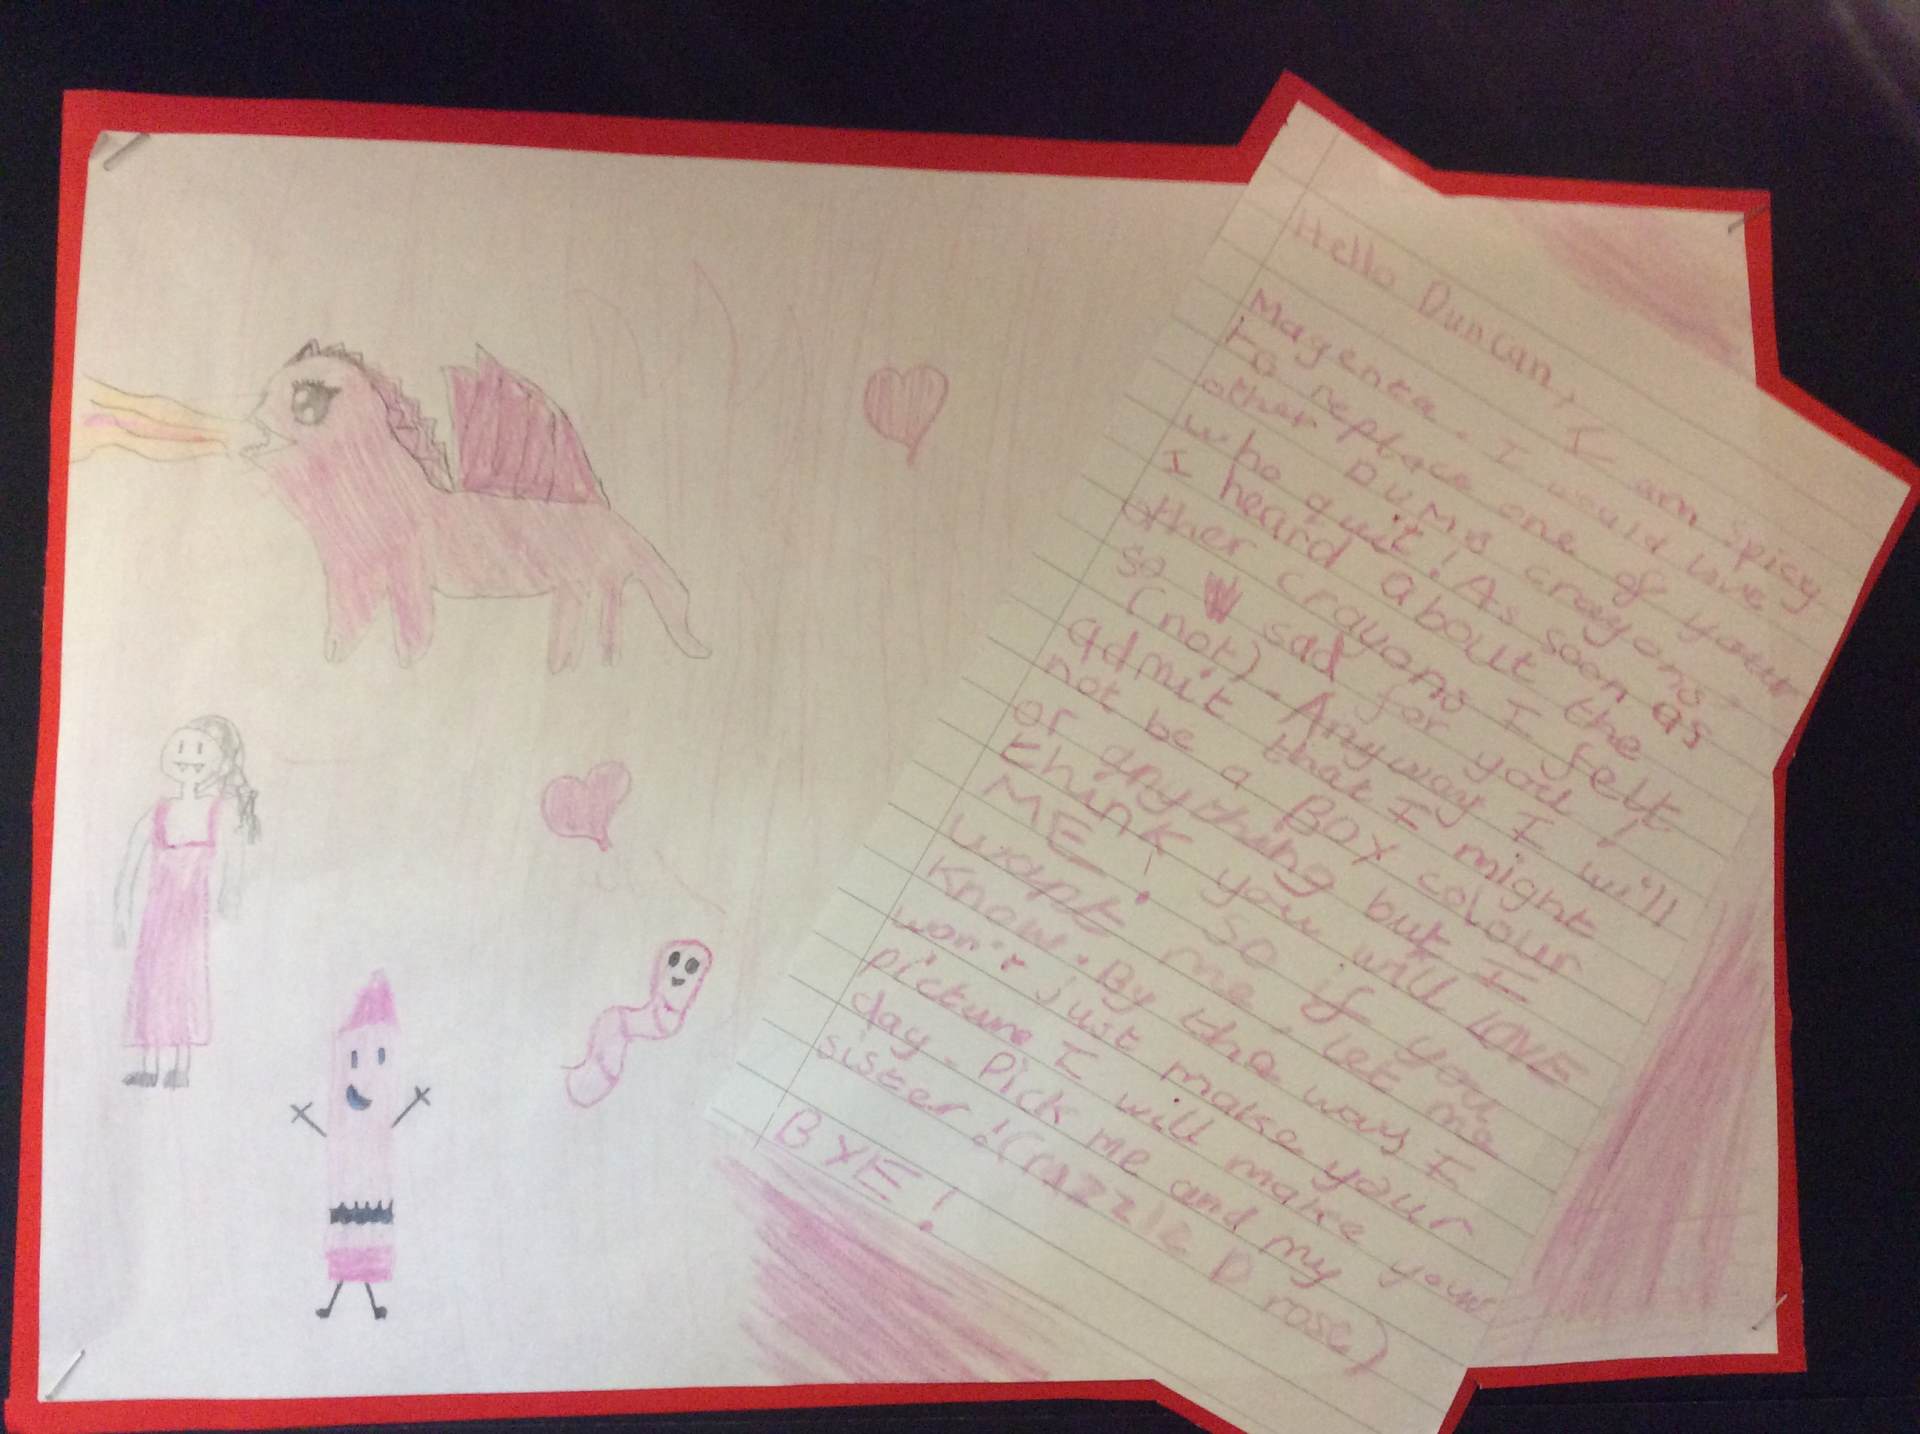 Hello Duncan, I am spicy
Magenta. I would love
to replace one of your
other DUMB crayons
who quit! As soon as
I heard about the
other crayons I felt
so sad for you!
(not). Anyway I will
admit that I might
not be a BOX colour
or anything but I
think you will LOVE
ME! So if you
want me, let me
know. By the way I
won't just make your
picture I will make your
day. Pick me and my
sister! (razzle D rose)
BYE!